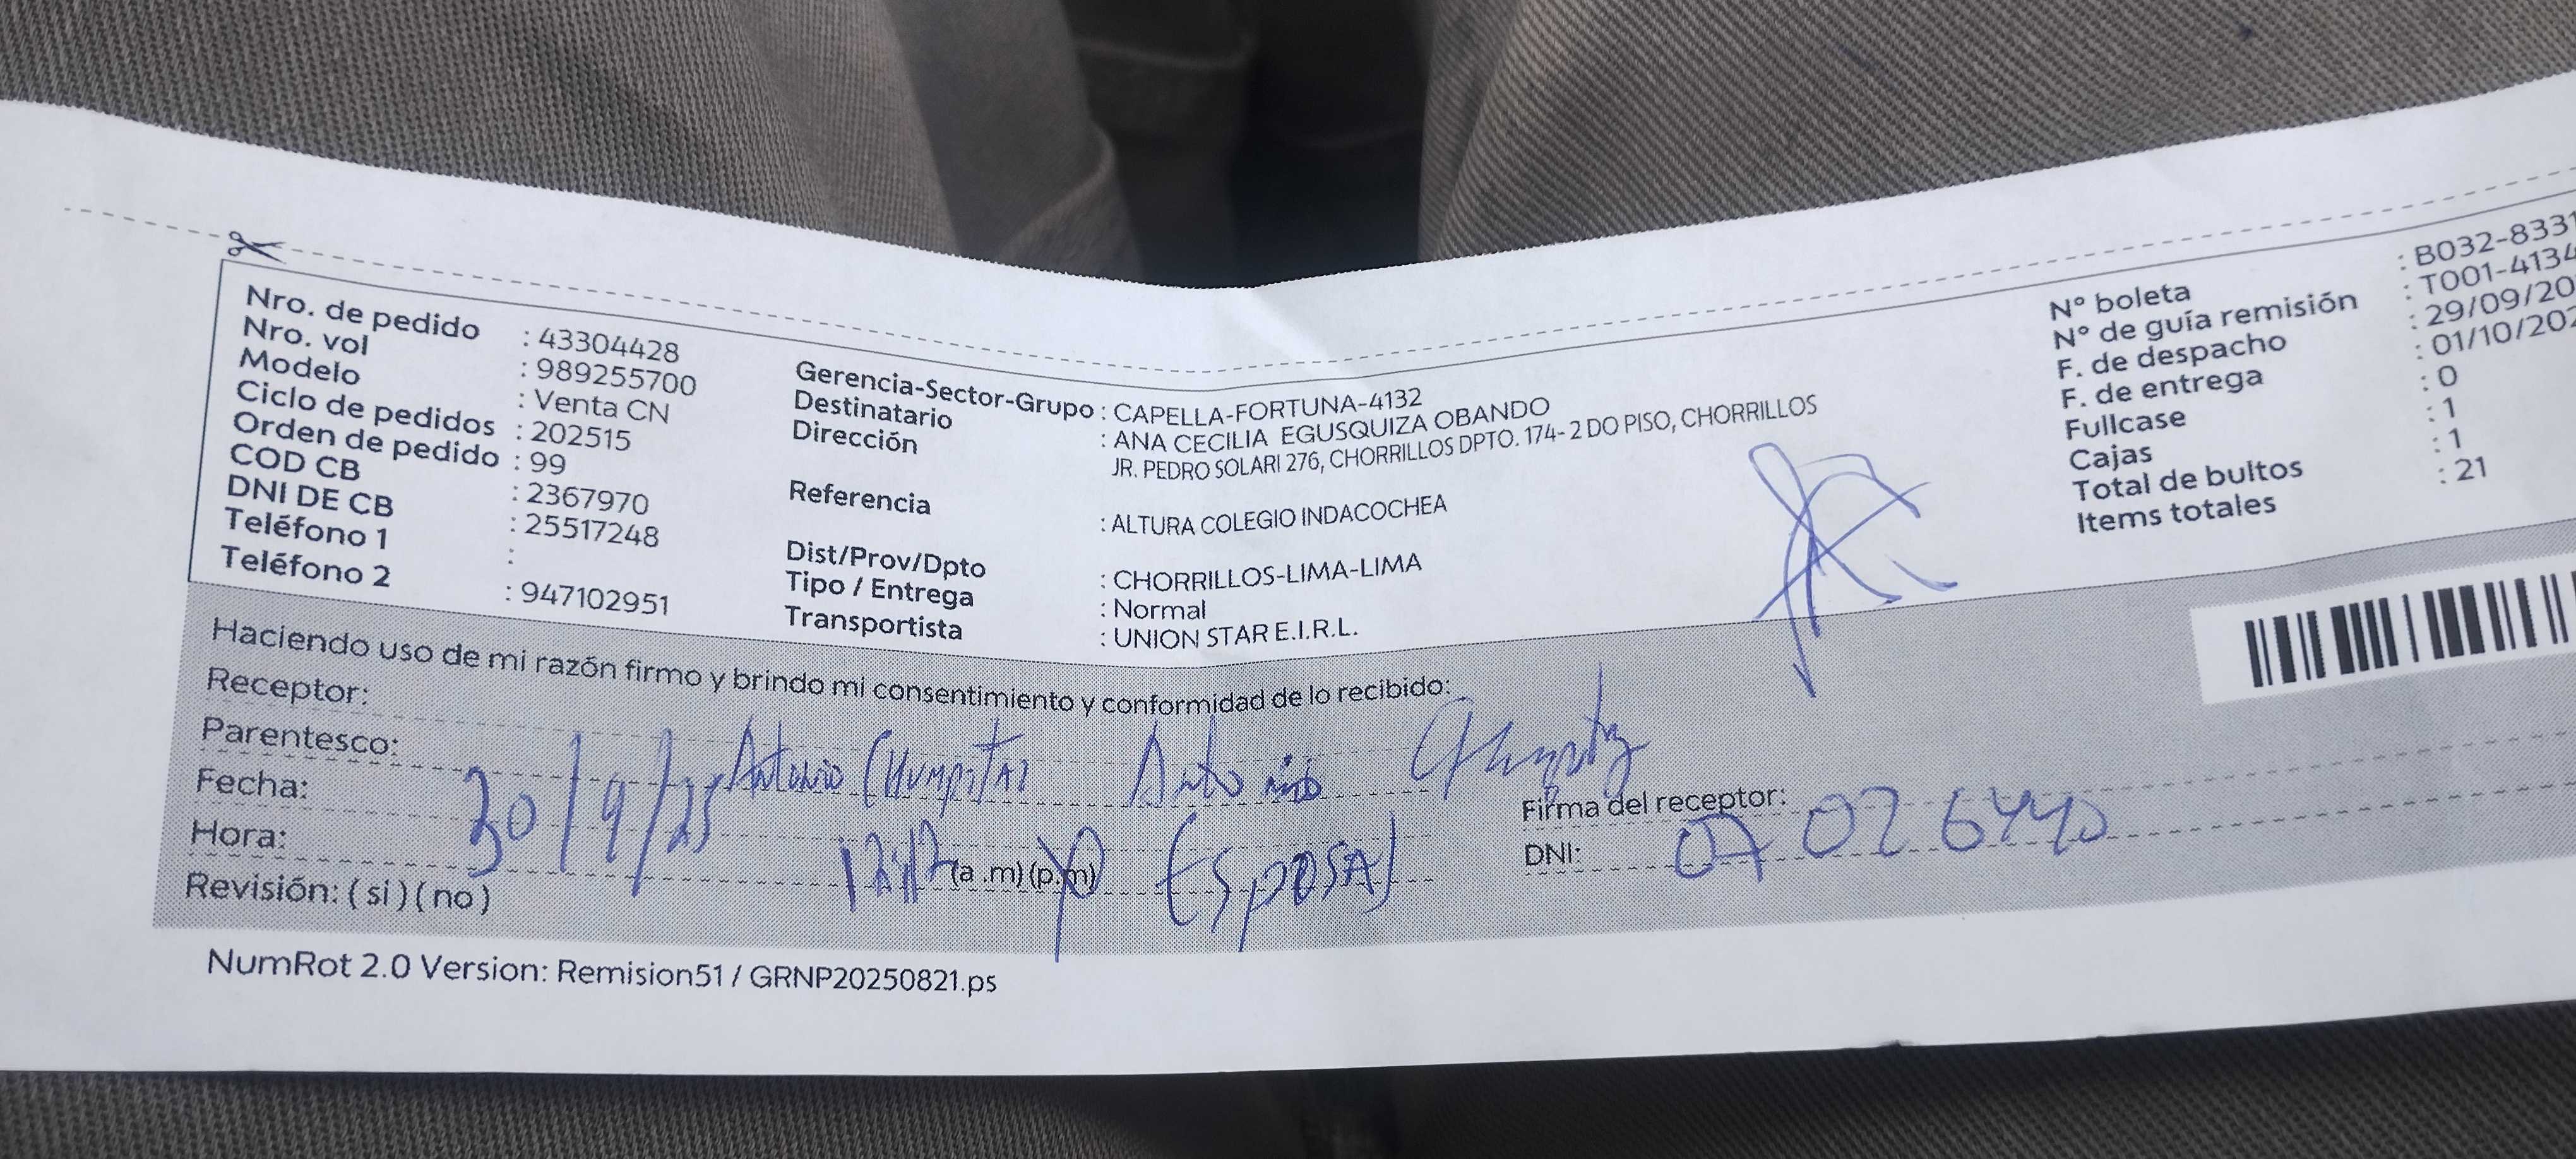 Nro. de pedido : 43304428
Nro. vol : 989255700
Modelo : Venta CN
Ciclo de pedidos : 202515
Orden de pedido : 99
COD CB : 2367970
DNI DE CB : 25517248
Teléfono 1 :
Teléfono 2 : 947102951
Gerencia-Sector-Grupo : CAPELLA-FORTUNA-4132
Destinatario : ANA CECILIA EGUSQUIZA OBANDO
Dirección JR. PEDRO SOLARI 276, CHORRILLOS DPTO. 174- 2 DO PISO, CHORRILLOS
Referencia : ALTURA COLEGIO INDACOCHEA
Dist/Prov/Dpto : CHORRILLOS-LIMA-LIMA
Tipo / Entrega : Normal
Transportista : UNION STAR E.I.R.L.
N° boleta : B032-833
N° de guía remisión : T001-4134
F. de despacho : 29/09/20
F. de entrega : 01/10/202
Fullcase : 0
Cajas : 1
Total de bultos : 1
Items totales : 21
Haciendo uso de mi razón firmo y brindo mi consentimiento y conformidad de lo recibido:
Receptor:
Parentesco: Antonio Antonio
Fecha: 30/9/25
Firma del receptor:
Hora: (a .m) (p.m) Esposa
DNI:
Revisión: ( si ) ( no )
NumRot 2.0 Version: Remision51 / GRNP20250821.ps